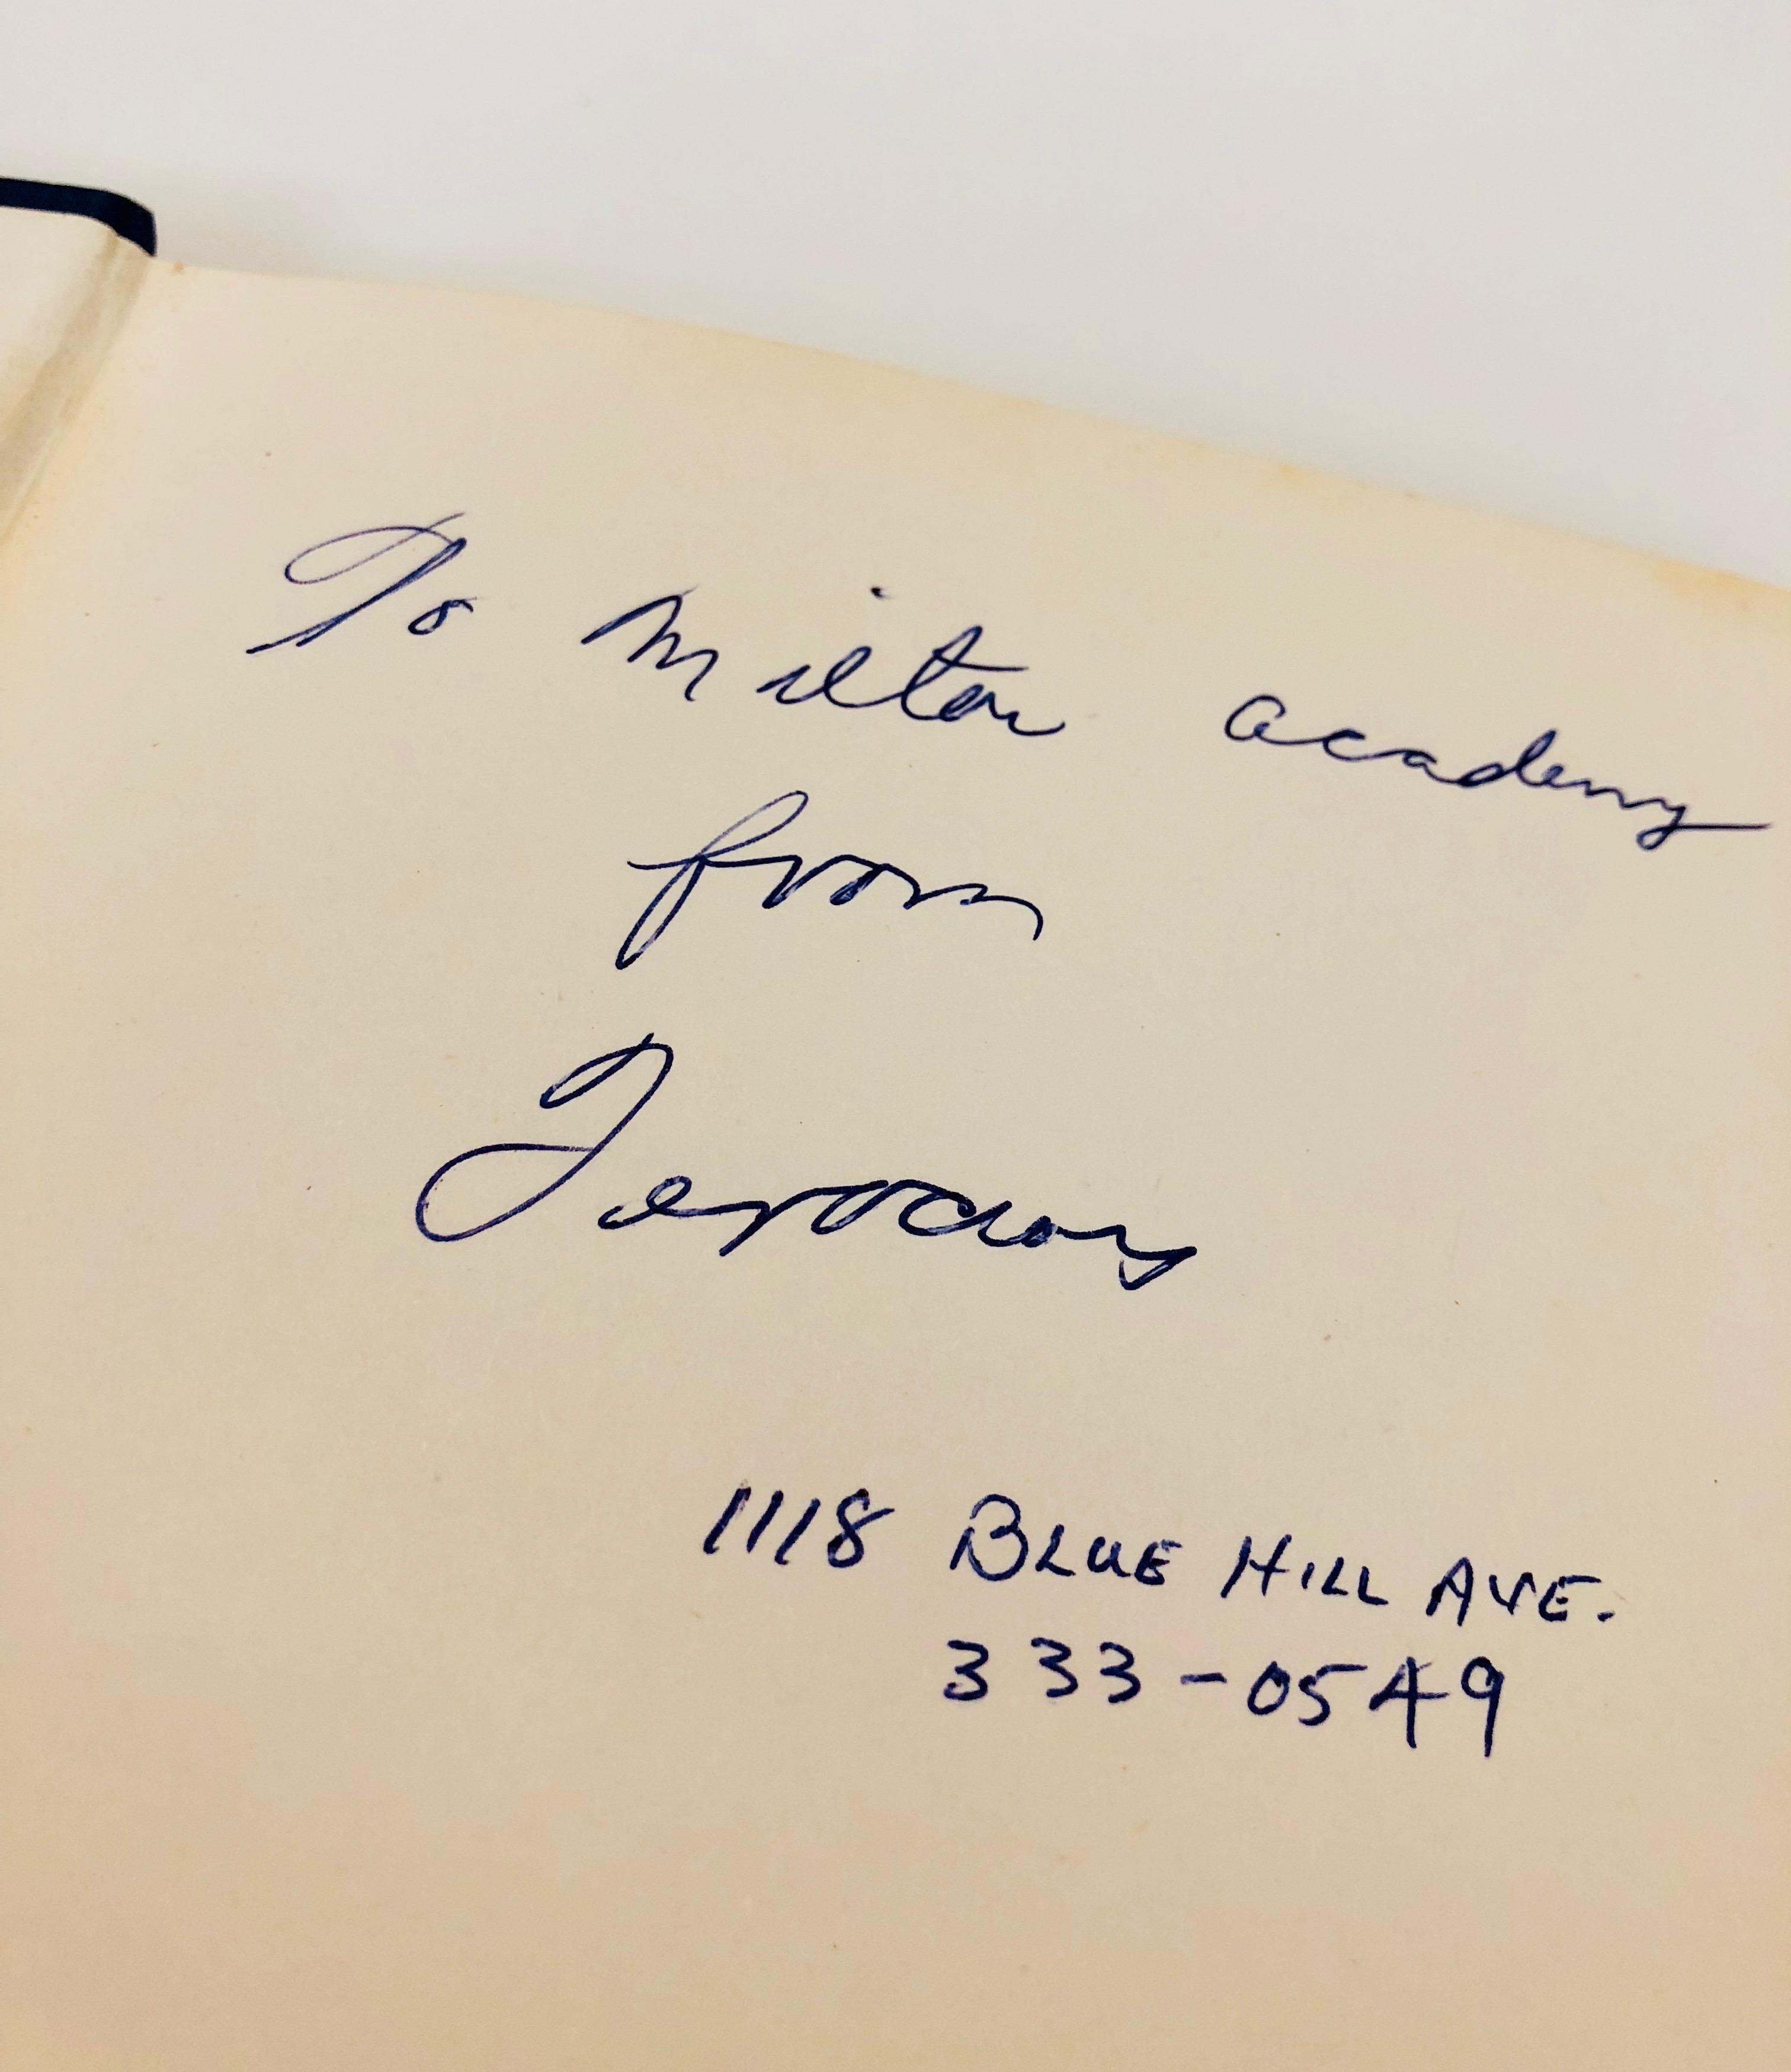 To Milton academy
from
1118 BLUE HILL AVE.
333-0549